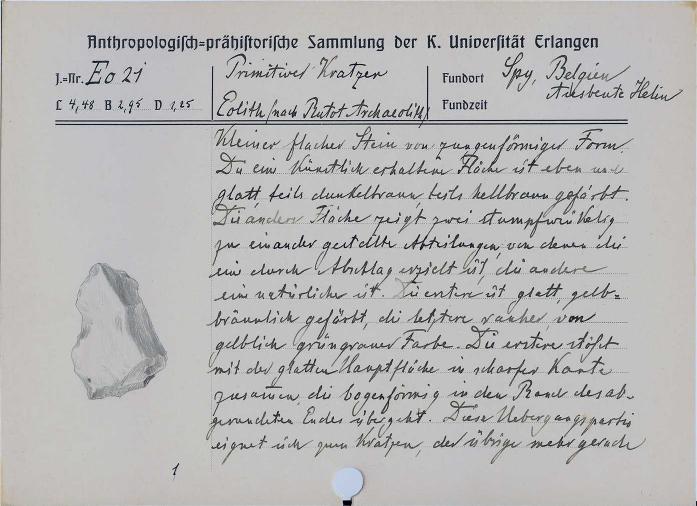 Anthropologisch=prähistorische Sammlung der K. Universität Erlangen
J.=Nr. Eo 21
L 4,48 B 2,95 D 1,25
Primitiver Kratzer
Eolith (nach Rutot Archaeolith)
Fundort Spy, Belgien
Ausbeute Helin
Fundzeit
Kleiner flacher Stein von zungenförmiger Form.
Die eine künstlich erhaltene Fläche ist eben und
glatt, teils dunkelbraun teils hellbraun gefärbt.
Die andere Fläche zeigt zwei stumpfwinkelig
zu einander gestellte Abteilungen, von denen die
eine durch Abschlag erzielt ist, die andere
eine natürliche ist. Die erstere ist glatt, gelb=
bräunlich gefärbt, die letztere rauher, von
gelblich grüngrauer Farbe. Die erstere stößt
mit der glatten Hauptfläche in scharfer Kante
zusammen, die bogenförmig in den Rand des ab=
gerundeten Endes übergeht. Diese Uebergangspartie
eignet sich zum Kratzen, der übrige mehr gerade
1